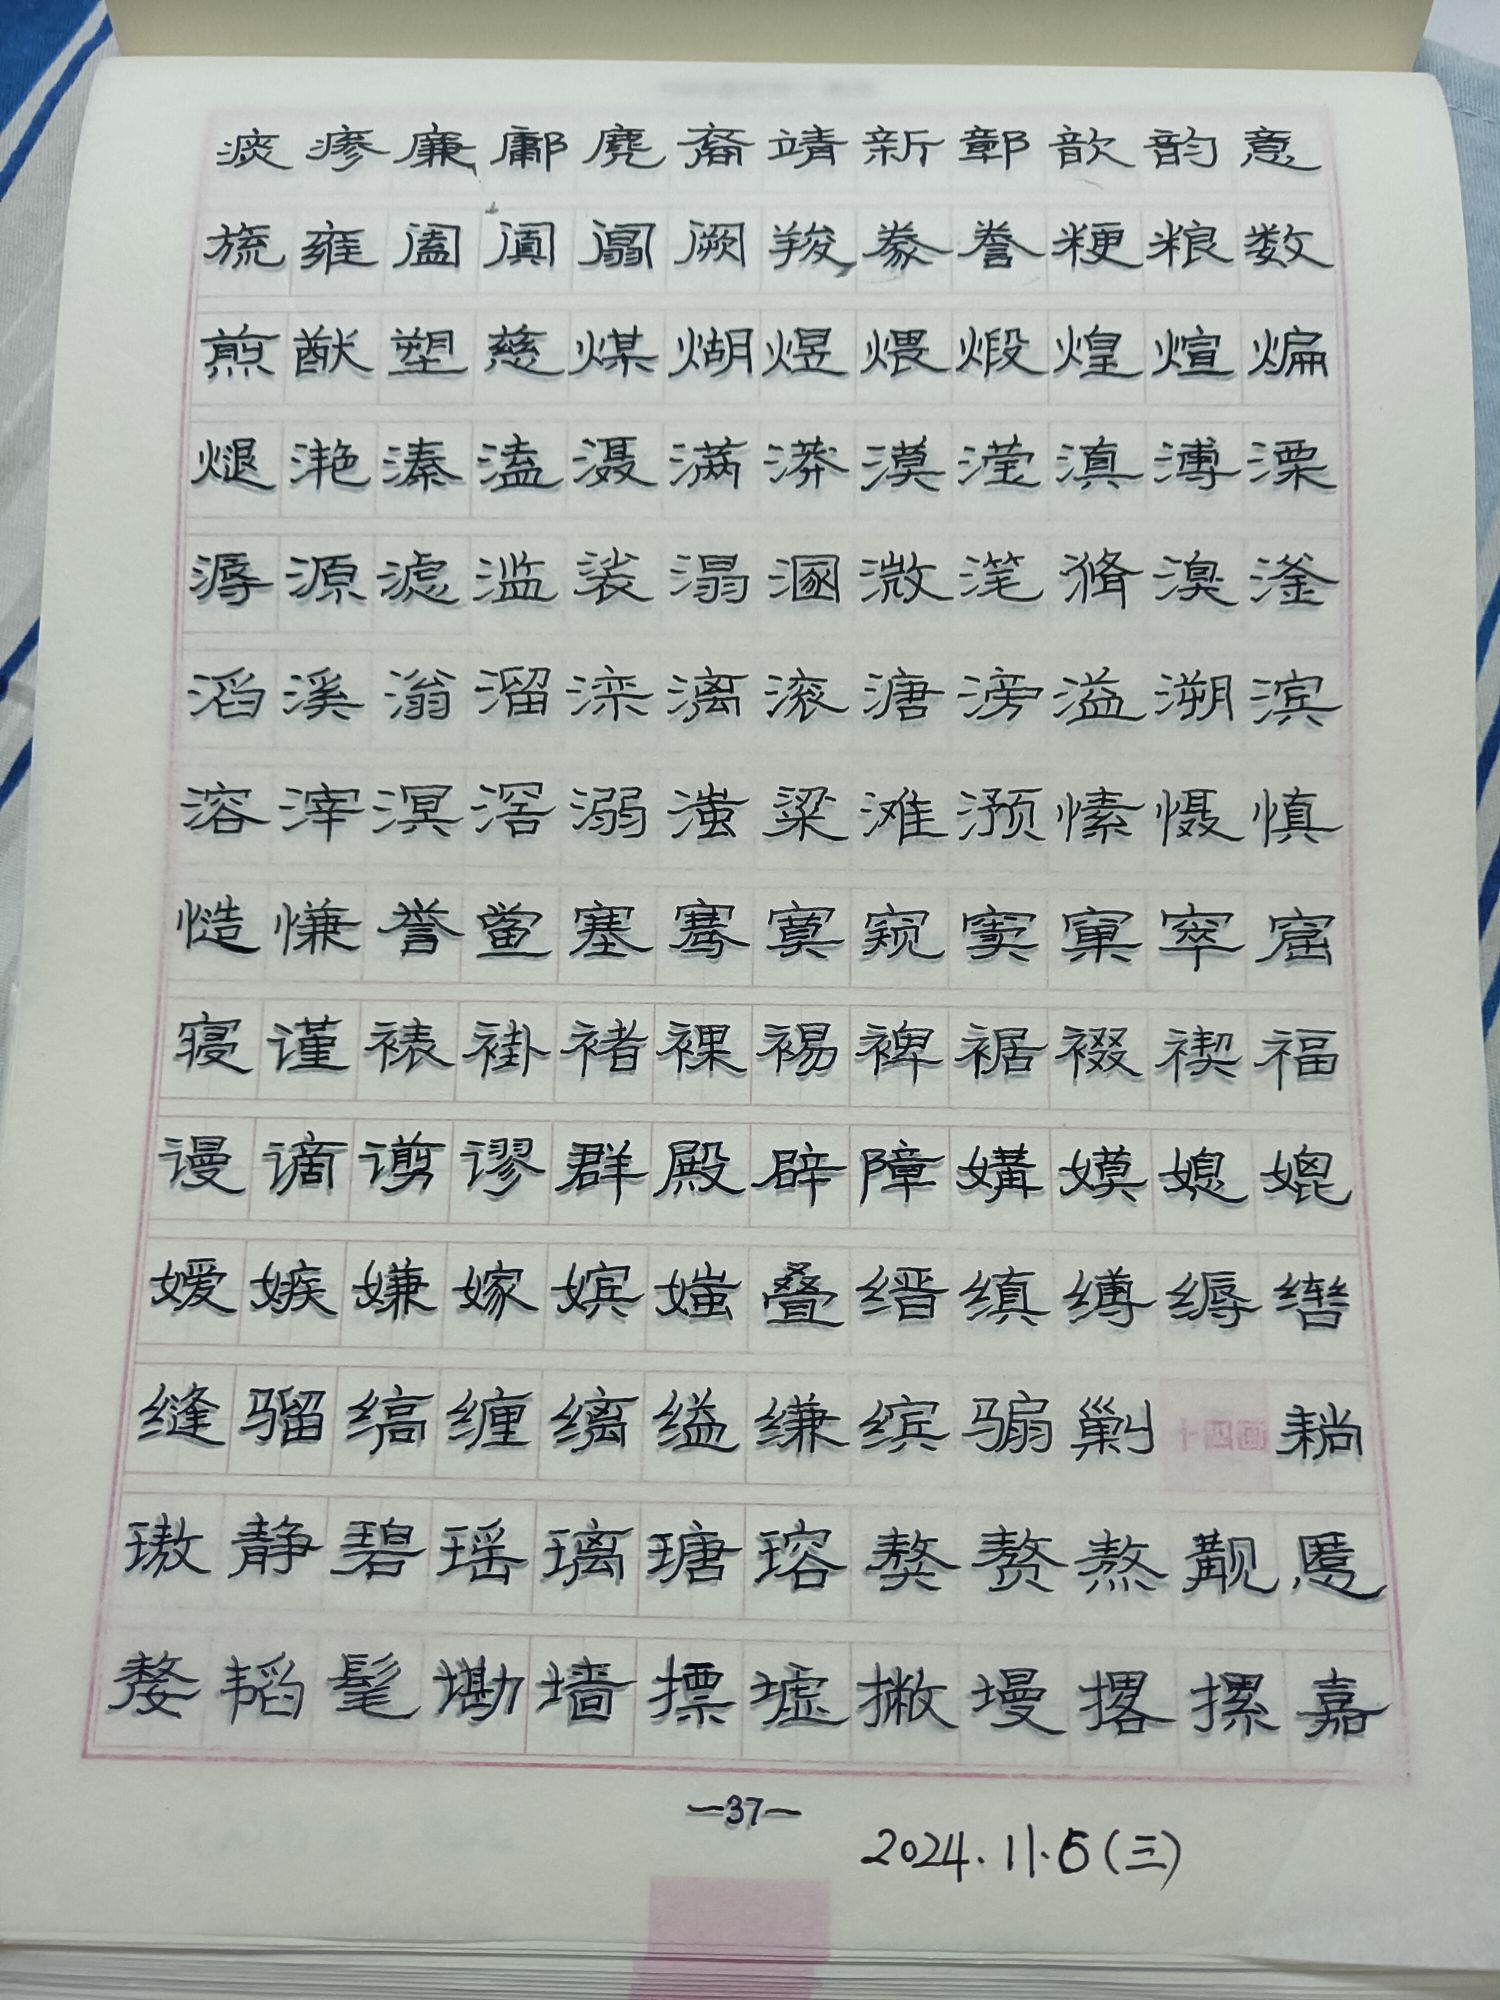 痰瘆廉鄘麂裔靖新鄣歆韵意
旒雍阖阗阘阙羧豢誊粳粮数
煎猷塑慈煤煳煜煨煅煌煊煸
煺滟溱溘滠满漭漠滢滇溥溧
溽源滤滥裟溻溷溦滗滫溴滏
滔溪滃溜滦漓滚溏滂溢溯滨
溶滓溟滘溺滍粱滩滪愫慑慎
慥慊誉鲎塞骞寞窥窦窠窣窟
寝谨裱褂褚裸裼裨裾裰禊福
谩谪谫谬群殿辟障媾嫫媳媲
嫒嫉嫌嫁嫔媸叠缙缜缚缛辔
缝骝缟缠缡缢缣缤骟剿 十四画 耥
璈静碧瑶璃瑭瑢獒赘熬觏慝
嫠韬髦墈墙摽墟撇墁撂摞嘉
—37—
2024.11.6(三)